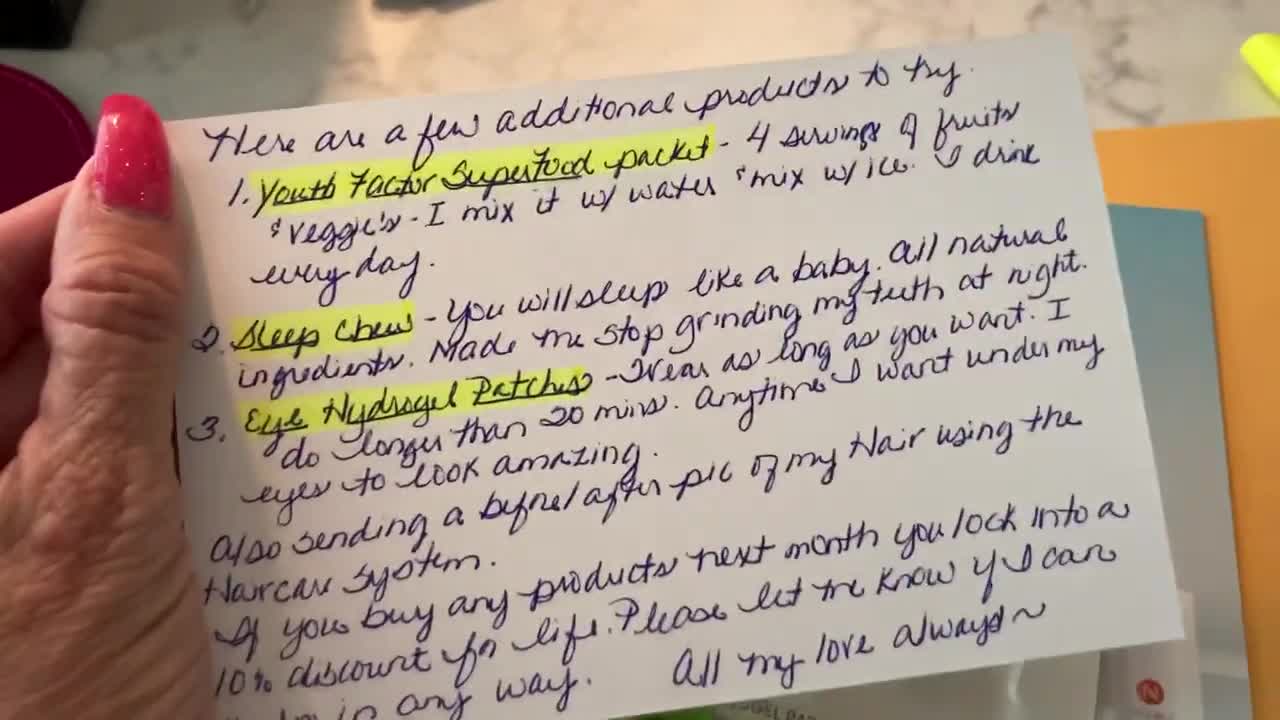 Here are a few additional products to try.
1. Youth Factor Superfood packet - 4 servings of fruits
& veggie's - I mix it w/ water & mix w/ ice. I drink
every day.
2. Sleep Chew - You will sleep like a baby. All natural
ingredients. Made me stop grinding my teeth at night.
3. Eye Hydrogel Patches - Wear as long as you want. I
do longer than 20 mins. Anytime I want under my
eyes to look amazing.
Also sending a before/after pic of my Hair using the
Haircare system.
If you buy any products next month you lock into a
10% discount for life. Please let me know if I can
in any way. All my love always~
N